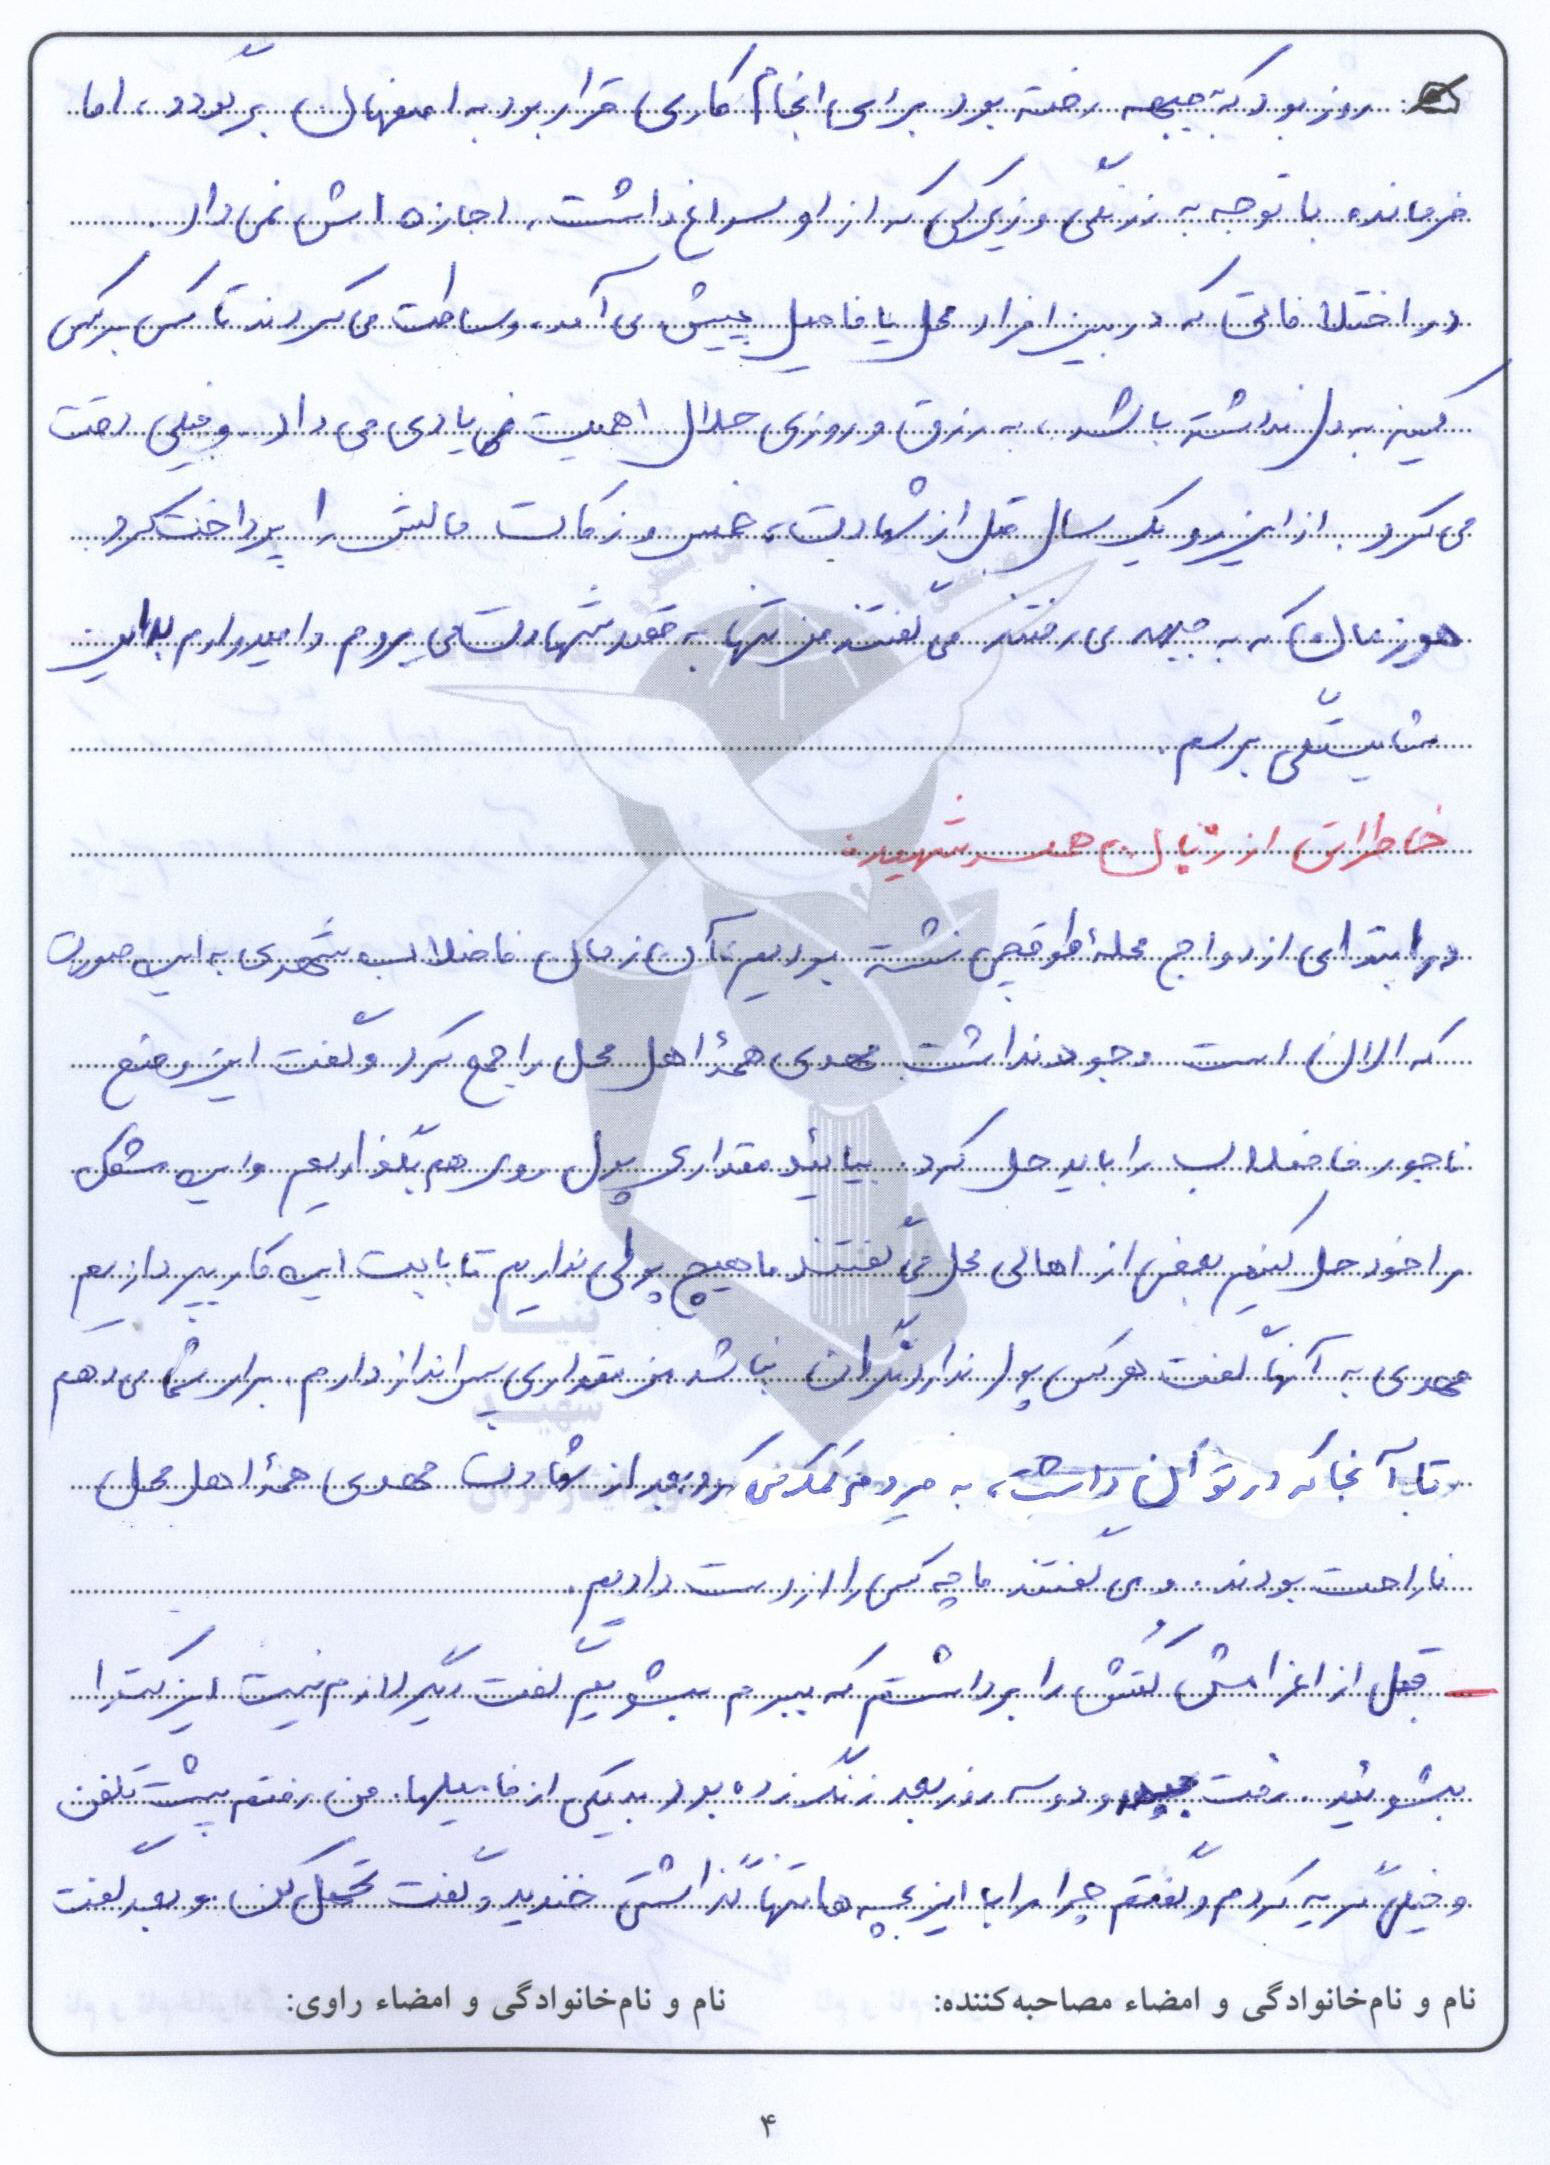 روز بود که به جبهه رفته بود برای انجام کاری قرار بود به اصفهان برگردد، اما
فرمانده با توجه به زرنگی و زیرکی که از او سراغ داشت، اجازه اش نمی داد.
در اختلافاتی که در بین افراد محل یا فامیل پیش می آمد، وساطت می کردند تا کسی بر کسی
کینه به دل نداشته باشد، به رزق و روزی حلال اهمیت زیادی می داد. و خیلی دقت
می کرد. از این رو یک سال قبل از شهادت، خمس و زکات مالش را پرداخت کرد.
هر زمان که به جبهه می رفتند می گفتند من تنها به قصد شهادت می روم و امیدوارم به این
شایستگی برسم.
خاطراتی از زبان همسر شهید:
در ابتدای ازدواج محلهٔ طوقچی نشسته بودیم، آن زمان فاضلاب شهری به این صورت
که الان است وجود نداشت مهدی همهٔ اهل محل را جمع کرد و گفت این وضع
ناجور فاضلاب را باید حل کرد. بیائید مقداری پول روی هم بگذاریم و این مشکل
را خود حل کنیم بعضی از اهالی محل می گفتند ما هیچ پولی نداریم تا بابت این کار بپردازیم
مهدی به آنها گفت هر کس پول ندارد نگران نباشد من مقداری پس انداز دارم. برای شما می دهم
تا آنجا که در توان داشت، به مردم کمک می کرد بعد از شهادت مهدی همهٔ اهل محل
ناراحت بودند. و می گفتند ما چه کسی را از دست دادیم.
— قبل از اعزامش کتش را برداشتم که ببرم بشویم گفت دیگر لازم نیست این کت را
بشوئید. رفت و دو سه روز بعد زنگ زده بود به یکی از فامیلها. من رفتم پشت تلفن
و خیلی گریه کردم و گفتم چرا مرا با این بچه ها تنها گذاشتی خندید و گفت تحمل کن و بعد گفت
نام و نام‌خانوادگی و امضاء مصاحبه‌کننده: نام و نام‌خانوادگی و امضاء راوی:
۴